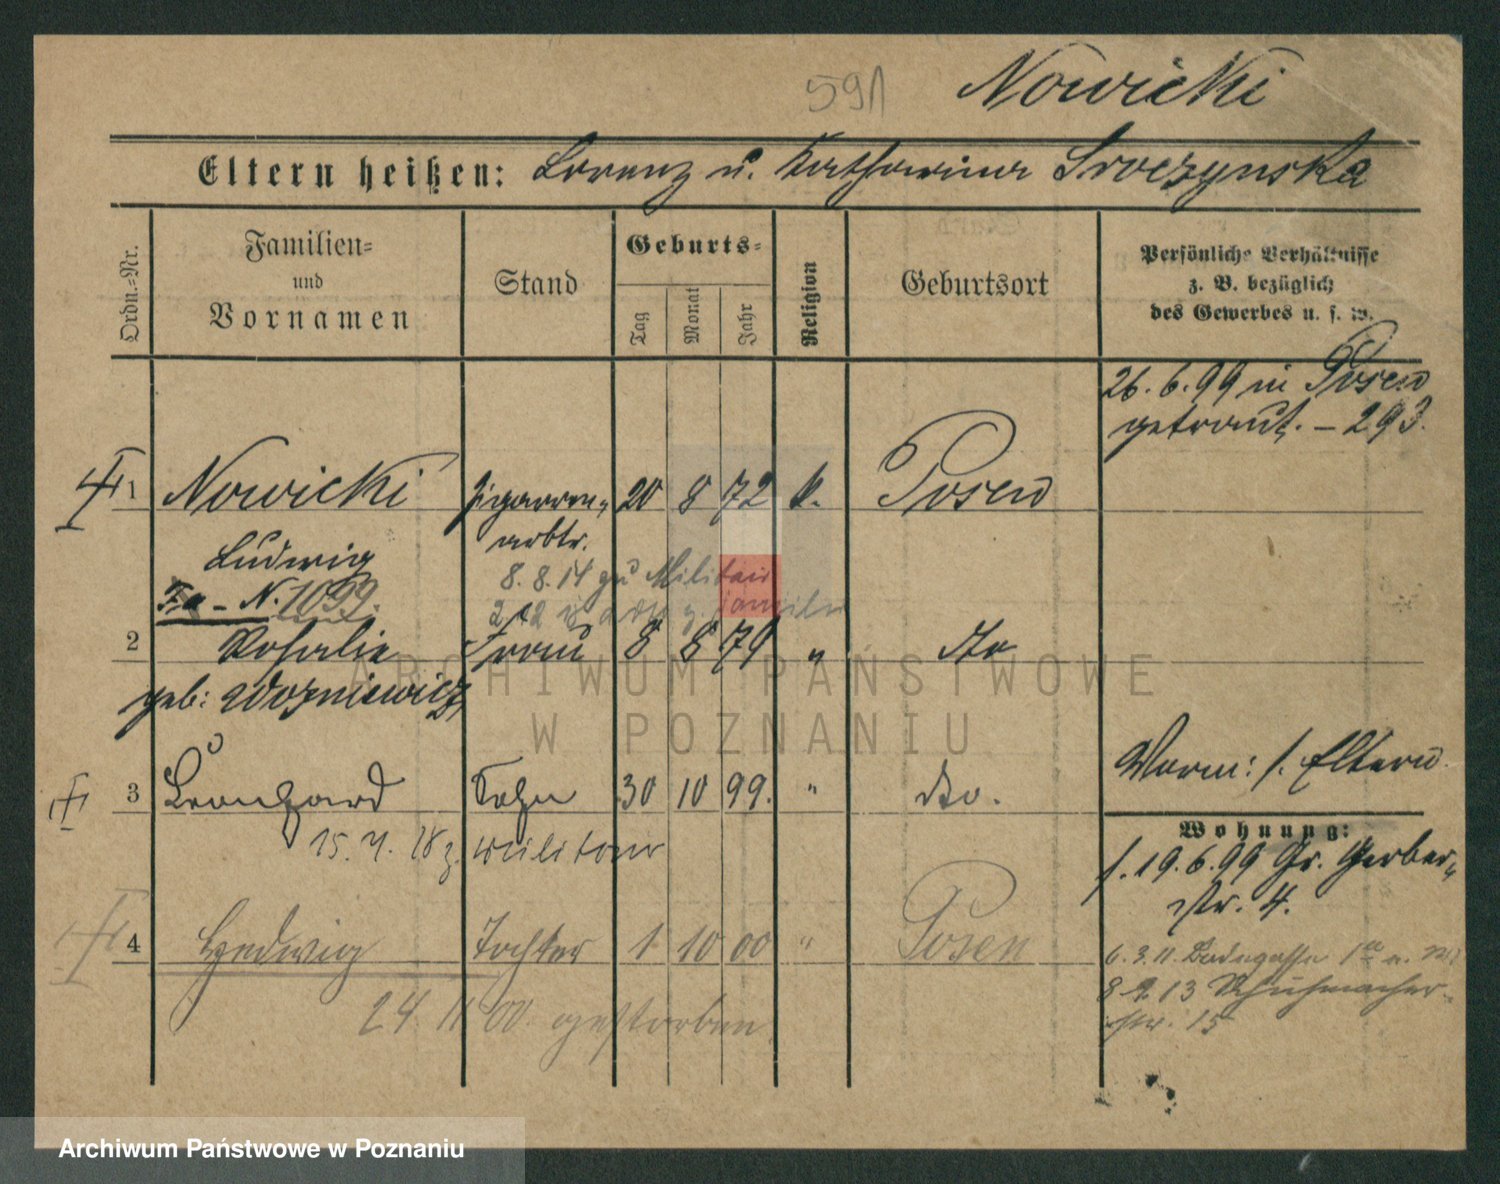 591
Nowicki
Eltern heißen: Lorenz u. Katharina Sroczynska
Ordn.-Nr.
Familien-
und
Vornamen
Stand
Geburts-
Tag
Monat
Jahr
Religion
Geburtsort
Persönliche Verhältnisse
z. B. bezüglich
des Gewerbes u. s. w.
26. 6. 99 in Posen
getraut. – 293.
1 Nowicki Zigarren- 20 8 72 k. Posen
arbtr.
Ludwig
8. 8. 14 zu Militair
Fa – N. 1099.
2 Rosalie Frau 8 8 79 " dto
geb: Wozniewicz
ARCHIWUM PAŃSTWOWE
W POZNANIU
Vorm: s. Eltern
3 Leonhard Sohn 30 10 99. " dto.
Wohnung:
15. 4. 18 z. Militair
f. 19. 6. 99 Gr. Gerber-
str. 4.
4 Hedwig Tochter 1 10 00 " Posen
6. 3. 11. Badegasse 1a
24 11 00. gestorben
8 2 13 Schuhmacher-
str. 15
Archiwum Państwowe w Poznaniu